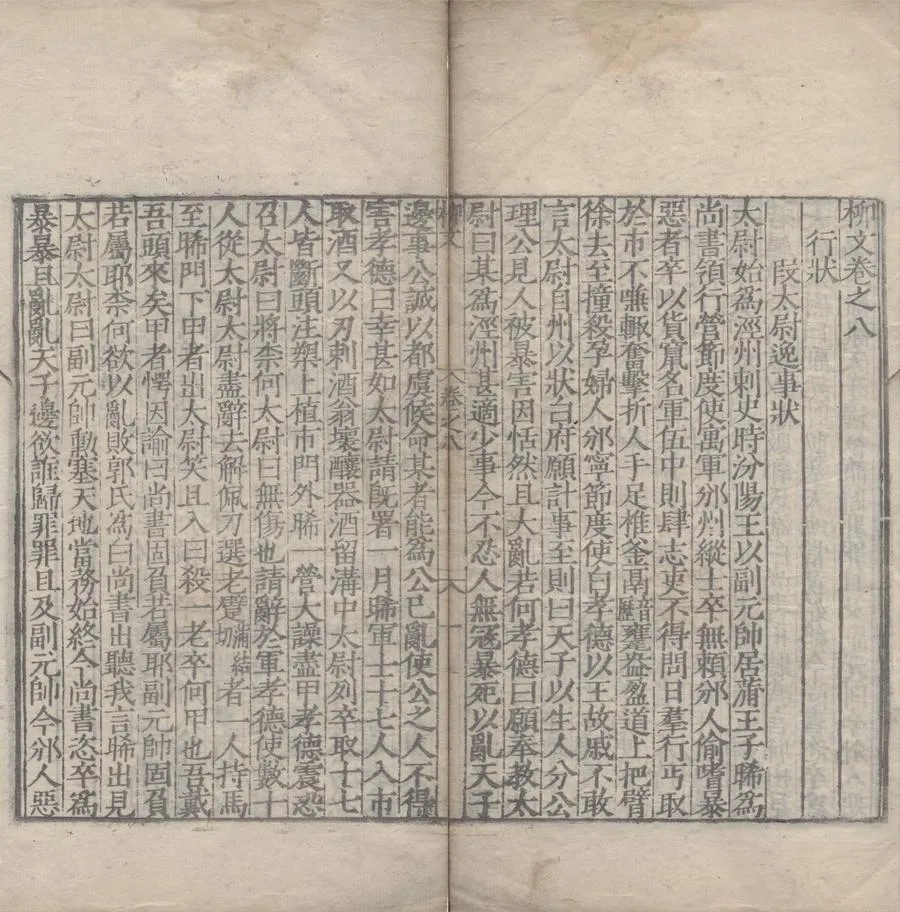 柳文卷之八
行狀
段太尉逸事狀
太尉始爲涇州刺史時汾陽王以副元帥居蒲王子晞爲
尚書領行營節度使寓軍邠州縱士卒無賴邠人偷嗜暴
惡者卒以貨竄名軍伍中則肆志吏不得問日羣行丐取
於市不嗛輒奮擊折人手足椎釜鬲音歷甕盎盈道上把臂
徐去至撞殺孕婦人邠寧節度使白孝德以王故戚不敢
言太尉自州以狀白府願計事至則曰天子以生人分公
理公見人被暴害因恬然且大亂若何孝德曰願奉教太
尉曰某爲涇州甚適少事今不忍人無寇暴死以亂天子
柳文 卷之八 一
邊事公誠以都虞候命某者能爲公已亂使公之人不得
害孝德曰幸甚如太尉請旣署一月晞軍士十七人入市
取酒又以刃刺酒翁壞釀器酒留溝中太尉列卒取十七
人皆斷頭注槊上植市門外晞一營大譟盡甲孝德震恐
召太尉曰將柰何太尉曰無傷也請辭於軍孝德使數十
人從太尉太尉盡辭去解佩刀選老躄蒲結切者一人持馬
至晞門下甲者出太尉笑且入曰殺一老卒何甲也吾戴
吾頭來矣甲者愕因諭曰尚書固負若屬耶副元帥固負
若屬耶柰何欲以亂敗郭氏爲白尚書出聽我言晞出見
太尉太尉曰副元帥勳塞天地當務始終今尚書恣卒爲
暴暴且亂亂天子邊欲誰歸罪罪且及副元帥今邠人惡